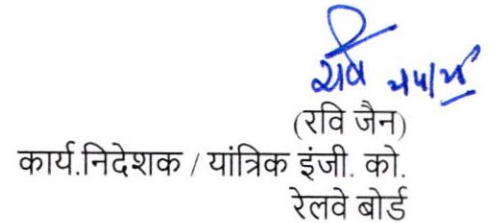 रवि
(रवि जैन)
कार्य.निदेशक / यांत्रिक इंजी. को.
रेलवे बोर्ड